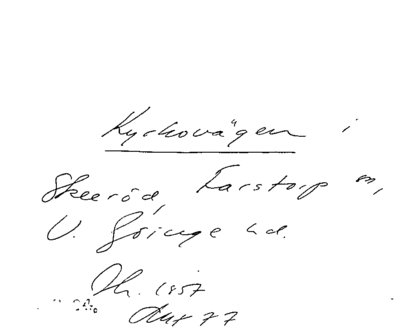 Kyrkovägen i
Skeeröd, Farstorp sn,
V. Göinge hd.
1957
77